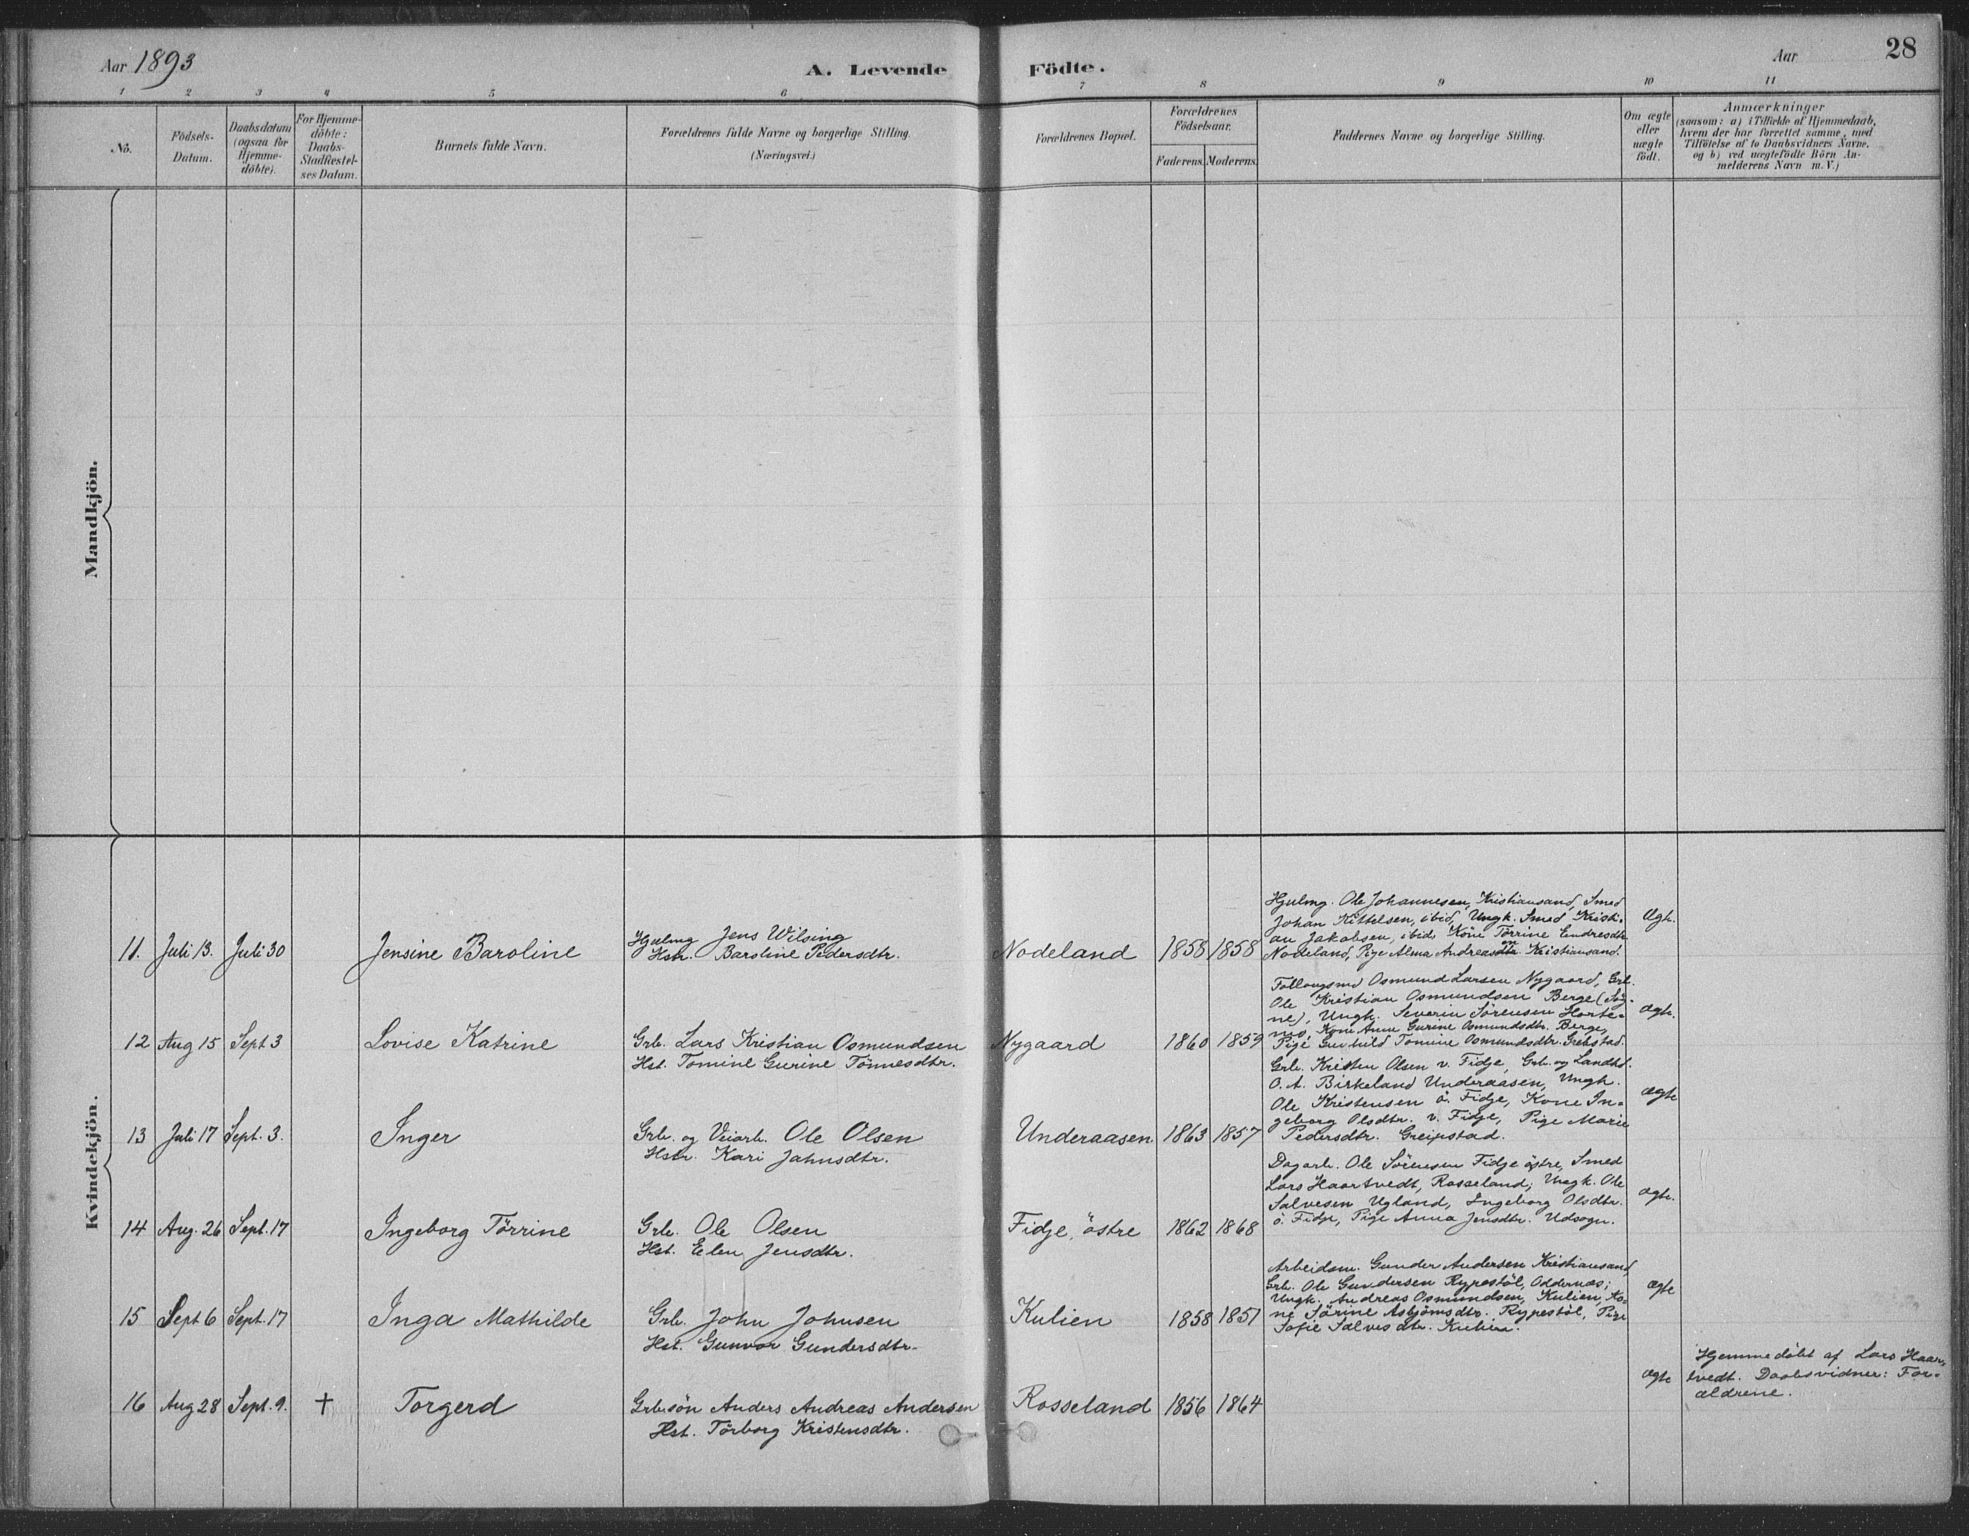 Aar 1893
A. Levende Födte.
Aar
28
1 2 3 4 5 6 7 8 9 10 11
No.
Födsels-
Datum.
Daabsdatum
(ogsaa for
Hjemme-
döbte).
For Hjemme-
döbte:
Daabs-
Stadfæstel-
ses Datum.
Barnets fulde Navn.
Forældrenes fulde Navne og borgerlige Stilling.
(Næringsvei.)
Forældrenes Bopæl.
Forældrenes
Födselsaar.
Faderens.
Moderens.
Faddernes Navne og borgerlige Stilling.
Om ægte
eller
uægte
födt.
Anmærkninger
(saasom: a) i Tilfælde af Hjemmedaab,
hvem der har forrettet samme, med
Tilföielse af to Daabsvidners Navne.
og b) ved uægtefödte Börn An-
melderens Navn m. V.)
Mandkjön.
Kvindekjön.
11. Juli 13. Juli 30 Jensine Baroline
Hjulmg Jens Wilsing
Hstr. Baroline Pedersdtr.
Nodeland 1858 1858
Hjulmg. Ole Johannesen, Kristiansand, Smed
Johan Kittelsen, ibid, Ungk. Smed Kristi-
an Jakobsen, ibid, Kone Törrine Endresdtr.
Nodeland, Pige Alma Andreassen Kristiansand.
Ægte.
12 Aug 15 Sept 3 Lovise Katrine
Grb. Lars Kristian Osmundsen
Hst. Tomine Gurine Tönnesdtr.
Nygaard 1860 1859
Follaugsmd Osmund Larsen Nygaard, Grb.
Ole Kristian Osmundsen Berge (Sog-
ne), Ungk. Severin Sörensen Horte-
mo, Kone Anne Gurine Osmundsdtr. Berge,
Pige Gunhild Tomine Osmundsdtr. Grebstad.
ægte.
13 Juli 17 Sept. 3. Inger
Grb. og Veiarb. Ole Olsen
Hstr. Kari Jahnsdtr.
Underaasen 1863 1857
Grb. Kristen Olsen v. Fidje, Grb. og Landhdl.
O. A. Birkeland Underaasen, Ungk.
Ole Kristensen ö. Fidje, Kone In-
geborg Olsdtr. v. Fidje, Pige Marie
Pedersdtr. Greipstad.
ægte
14 Aug. 26 Sept. 17 Ingeborg Törrine
Grb. Ole Olsen
Hst. Elen Jensdtr.
Fidje, östre 1862 1868
Dagarb. Ole Sörensen Fidje östre, Smed
Lars Haartvedt, Rosseland; Ungk. Ole
Salvesen Ugland, Ingeborg Olsdtr.
ö. Fidje, Pige Anna Jensdtr. Udsogn.
ægte.
15 Sept 6 Sept. 17 Inga Mathilde
Grb. John Johnsen
Hst. Gunvor Gundersdtr.
Kulien 1858 1851
Arbeidsm. Gunder Andersen Kristiansand,
Grb. Ole Gundersen Rypestöl, Oddernæs;
Ungk. Andreas Osmundsen, Kulien, Ko-
ne Sörine Asbjörnsdtr. Rypestöl, Pige
Sofie Salvesdtr. Kulien.
ægte
16 Aug 28 Sept. 9. + Torgerd
Grb.sön Anders Andreas Andersen
Hst. Törborg Kristensdtr.
Rosseland 1856 1864
ægte
Hjemmedöbt af Lars Haar-
tvedt. Daabsvidner: For-
ældrene.